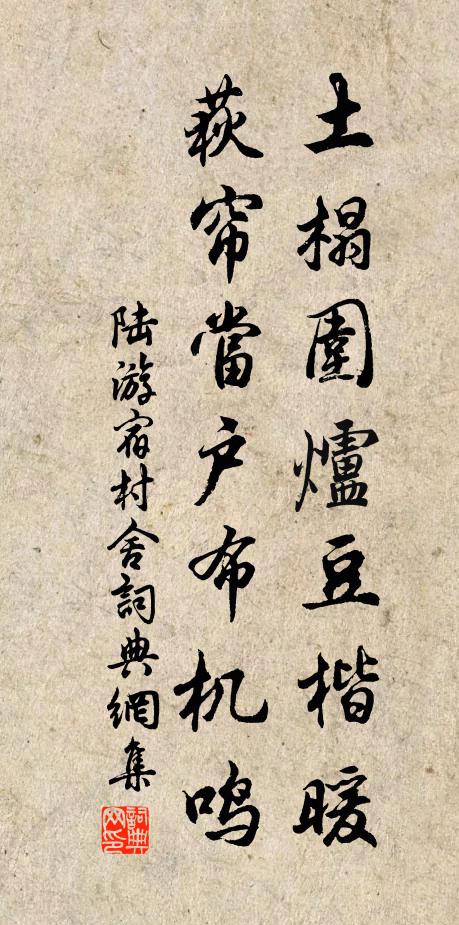 土榻圍爐豆楷暖
荻帘當户布机鸣
陆游宿村舍詞典網集
詞典
网印